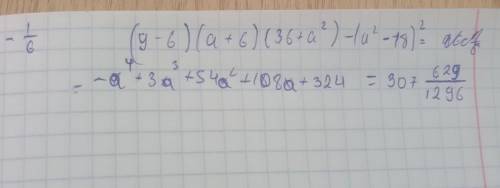 - 1/6 (y-6)(a+6)(36+a²)-(a²-18)²=
= -a⁴+3a³+54a²+108a+324 = 307 629/1296